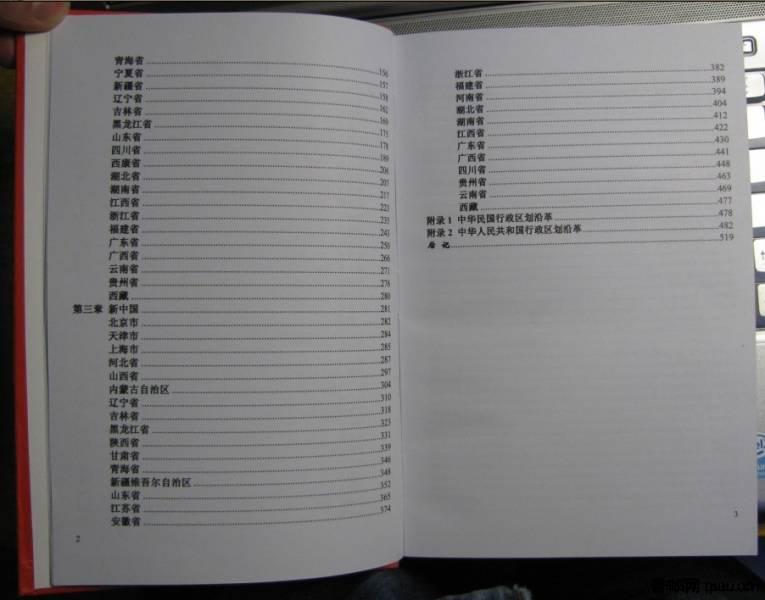 青海省 156
宁夏省 157
新疆省 158
辽宁省 162
吉林省 169
黑龙江省 175
山东省 178
四川省 189
西康省 206
湖北省 207
湖南省 217
江西省 223
浙江省 235
福建省 243
广东省 250
广西省 266
云南省 271
贵州省 276
西藏 280
第三章 新中国 281
北京市 282
天津市 284
上海市 285
河北省 287
山西省 297
内蒙古自治区 304
辽宁省 310
吉林省 318
黑龙江省 323
陕西省 331
甘肃省 339
青海省 346
新疆维吾尔自治区 348
山东省 352
江苏省 365
安徽省 374
2
浙江省 382
福建省 389
河南省 394
湖北省 404
湖南省 412
江西省 422
广东省 430
广西省 441
四川省 448
贵州省 463
云南省 469
西藏 477
附录1 中华民国行政区划沿革 478
附录2 中华人民共和国行政区划沿革 482
后 记 519
3